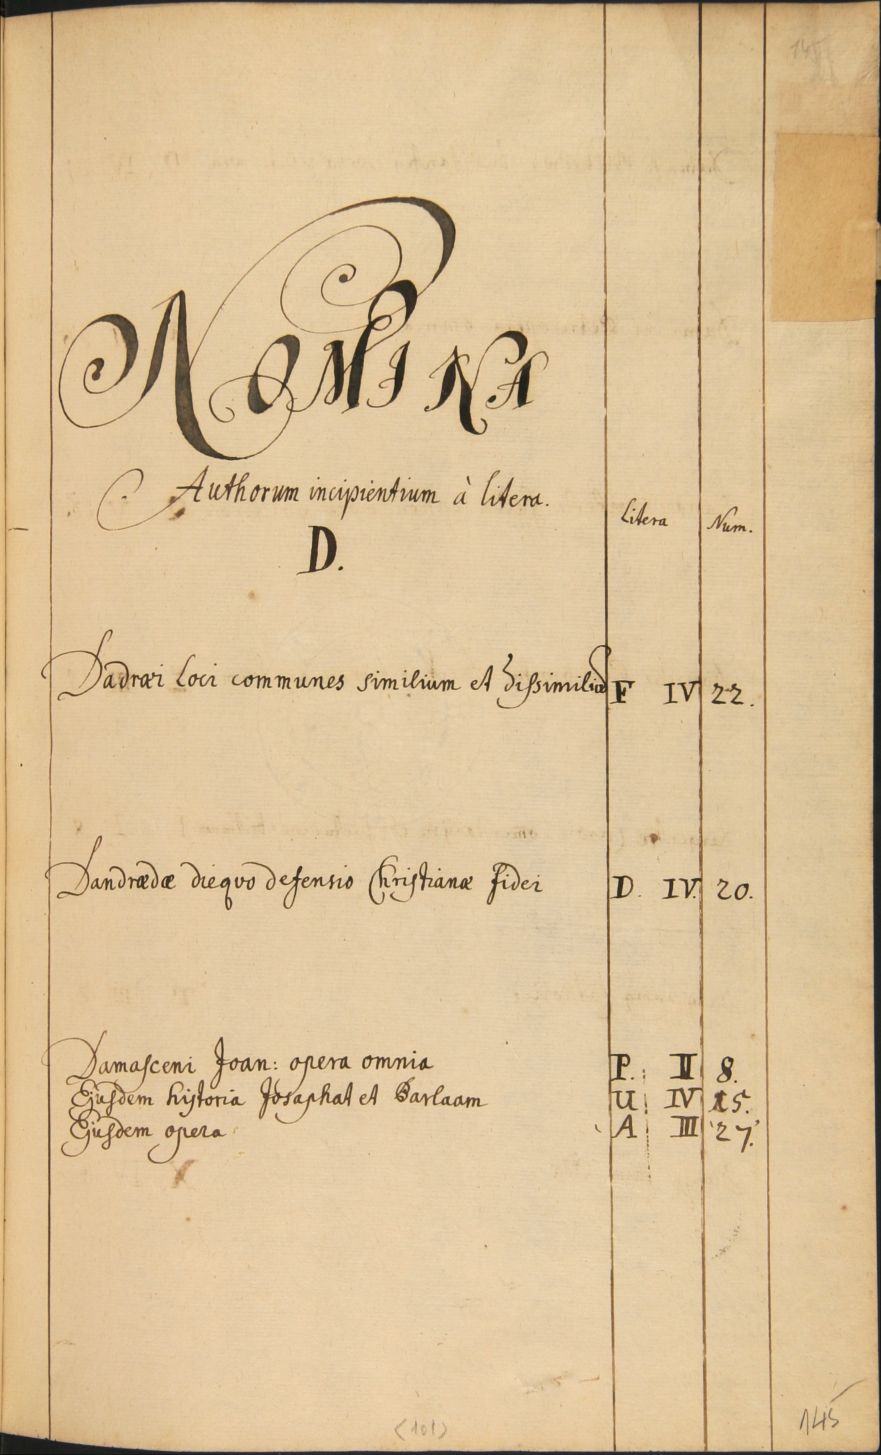 NOMINA
Authorum incipientium à litera.
D.
Litera Num.
Dadræi Loci communes similium et dissimiliū F IV 22.
Dandrædæ dieqvo defensio Christianæ fidei D. IV. 20.
Damasceni Joan: opera omnia P. II 8.
Ejusdem historia Josaphat et Barlaam U IV 15.
Ejusdem opera A III 27.
(101)
145